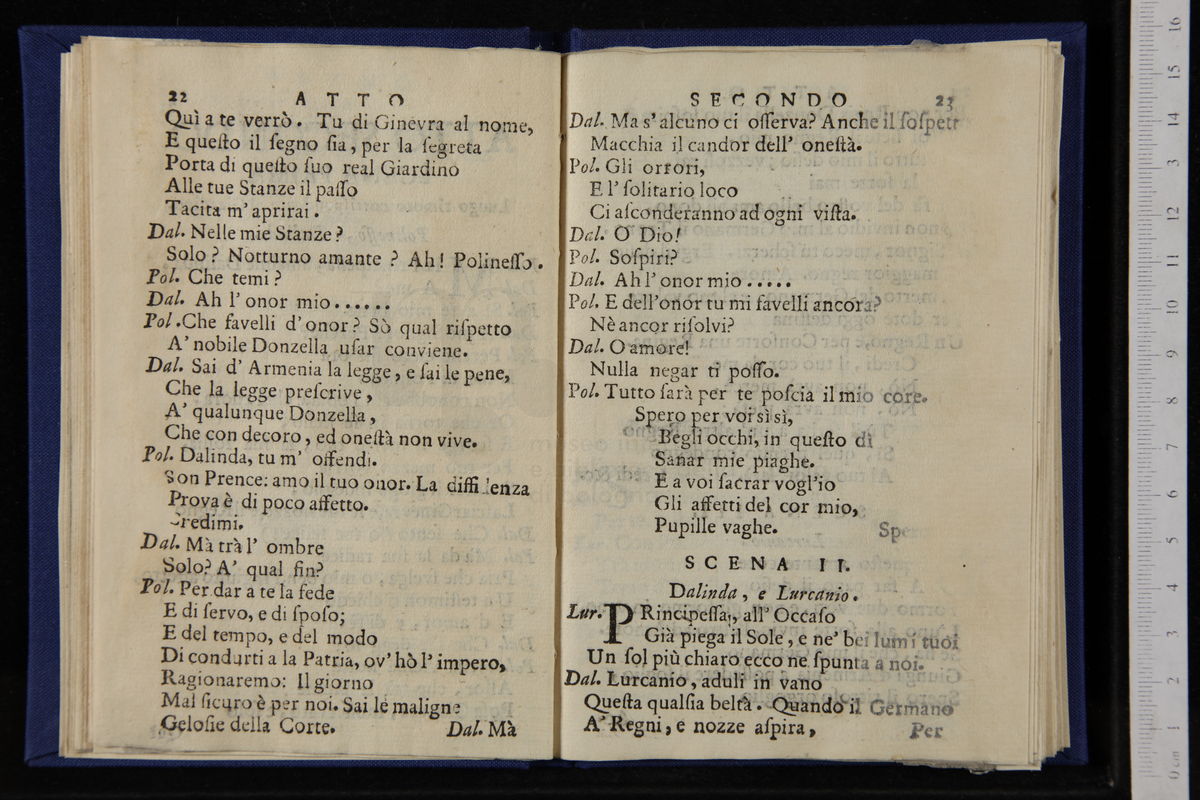 22 ATTO
Quì a te verrò. Tu di Ginevra al nome,
E queſto il ſegno ſia, per la ſegreta
Porta di queſto ſuo real Giardino
Alle tue Stanze il paſſo
Tacita m' aprirai.
Dal. Nelle mie Stanze?
Solo? Notturno amante? Ah! Polineſſo.
Pol. Che temi?
Dal. Ah l' onor mio......
Pol. Che favelli d' onor? Sò qual riſpetto
A' nobile Donzella uſar conviene.
Dal. Sai d' Armenia la legge, e ſai le pene,
Che la legge preſcrive,
A' qualunque Donzella,
Che con decoro, ed oneſtà non vive.
Pol. Dalinda, tu m' offendi.
Son Prence: amo il tuo onor. La diffidenza
Prova è di poco affetto.
Credimi.
Dal. Mà trà l' ombre
Solo? A' qual fin?
Pol. Per dar a te la fede
E di ſervo, e di ſpoſo;
E del tempo, e del modo
Di condurti a la Patria, ov' hò l' impero,
Ragionaremo: Il giorno
Mal ſicuro è per noi. Sai le maligne
Geloſie della Corte.
Dal. Mà
SECONDO 23
Dal. Ma s' alcuno ci oſſerva? Anche il ſoſpett
Macchia il candor dell' oneſtà.
Pol. Gli orrori,
E l' ſolitario loco
Ci aſconderanno ad ogni viſta.
Dal. O Dio!
Pol. Soſpiri?
Dal. Ah l' onor mio.....
Pol. E dell' onor tu mi favelli ancora?
Nè ancor riſolvi?
Dal. O amore!
Nulla negar ti poſſo.
Pol. Tutto ſarà per te poſcia il mio core.
Spero per voi sì sì,
Begli occhi, in queſto dì
Sanar mie piaghe.
E a voi ſacrar vogl'io
Gli affetti del cor mio,
Pupille vaghe. Spero
SCENA II.
Dalinda, e Lurcanio.
Lur. PRincipeſſa, all' Occaſo
Già piega il Sole, e ne' bei lumi tuoi
Un ſol più chiaro ecco ne ſpunta a noi.
Dal. Lurcanio, aduli in vano
Queſta qualſia beltà. Quando il Germano
A' Regni, e nozze aſpira,
Per